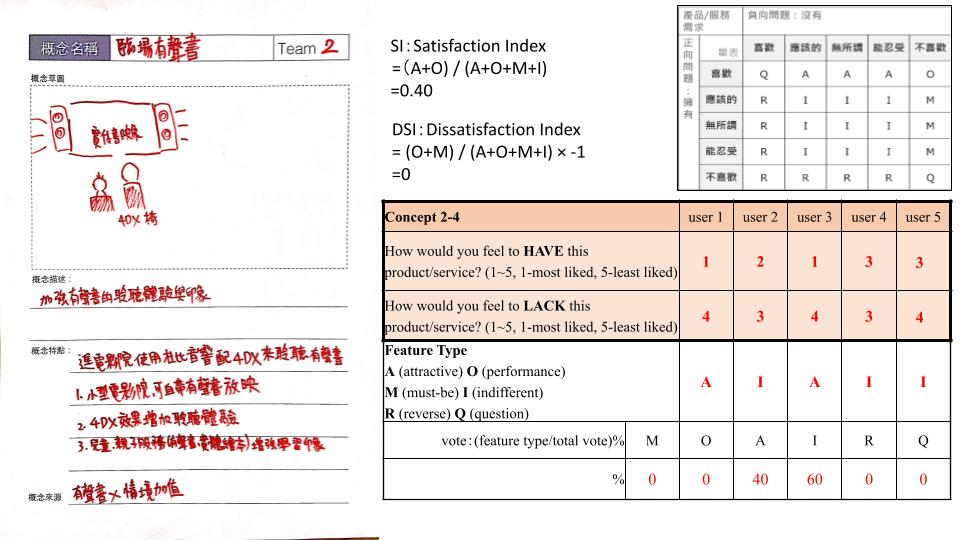 概念名稱 臨場有聲書 Team 2
概念草圖
4DX 椅
概念描述：
加強有聲書的聆聽體驗與印象
概念特點：
進電影院使用杜比音響配4DX來聆聽有聲書
1. 小型電影院,可自帶有聲書放映
2. 4DX效果增加聆聽體驗
3. 兒童.親子服務(有聲書.實體繪本)增強學習印象
概念來源 有聲書 × 情境加值
SI：Satisfaction Index
=（A+O) / (A+O+M+I)
=0.40
DSI：Dissatisfaction Index
= (O+M) / (A+O+M+I) × -1
=0
產品/服務需求 負向問題：沒有
正向問題：擁有
量表 喜歡 應該的 無所謂 能忍受 不喜歡
喜歡 Q A A A O
應該的 R I I I M
無所謂 R I I I M
能忍受 R I I I M
不喜歡 R R R R Q
Concept 2-4 user 1 user 2 user 3 user 4 user 5
How would you feel to HAVE this
product/service? (1~5, 1-most liked, 5-least liked) 1 2 1 3 3
How would you feel to LACK this
product/service? (1~5, 1-most liked, 5-least liked) 4 3 4 3 4
Feature Type
A (attractive) O (performance)
M (must-be) I (indifferent)
R (reverse) Q (question)
A I A I I
vote：(feature type/total vote)% M O A I R Q
% 0 0 40 60 0 0